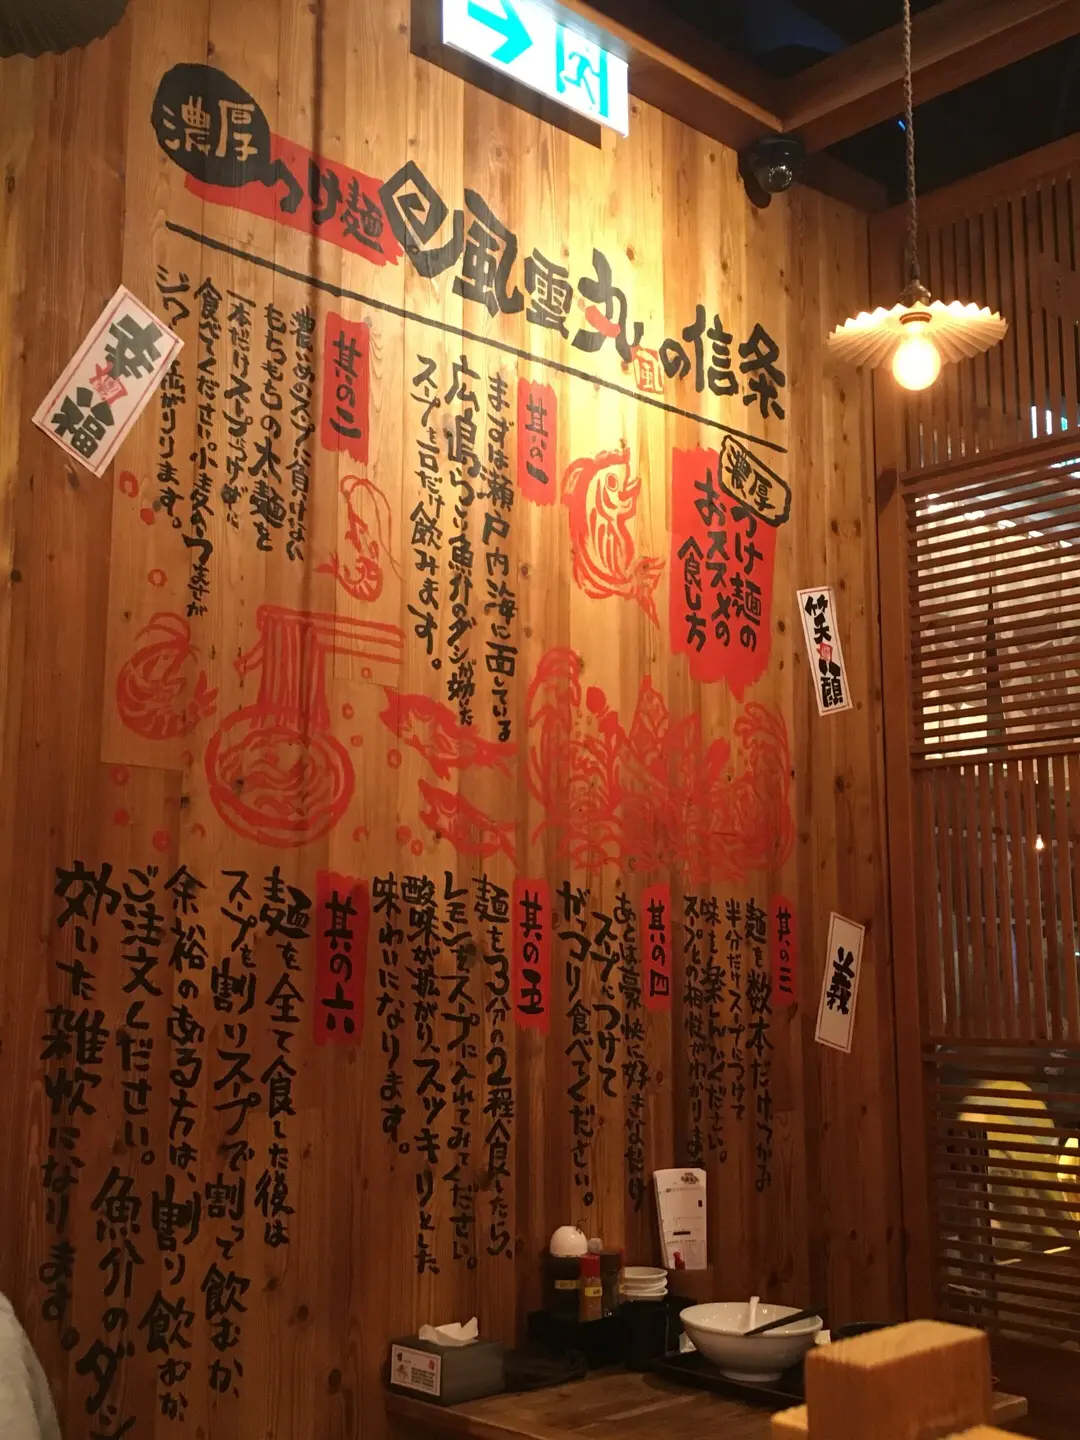 濃厚つけ麺 風雲丸の信条
濃厚つけ麺の
おススメの
食し方
其の一
まずは瀬戸内海に面している
広島らしい魚介のダシが効いた
スープを一口だけ飲みます。
其の二
濃いめのスープに負けない
もちもちの太麺を
一本だけスープにつけずに
食べてください。小麦のうまさが
ジワ
がります。
其の三
麺を数本だけつかみ
半分だけスープにつけて
味を楽しんでください。
スープとの相性がわかりま
其の四
あとは豪快に好きなだけ
スープにつけて
がっつり食べてください。
其の五
麺を3分の2程食したら、
レモンをスープに入れてみてください。
酸味が拡がり、スッキリとした
味わいになります。
其の六
麺を全て食した後は
スープを割りスープで割って飲むか、
余裕のある方は、割り飲むか
ご注文ください。魚介のダシ
効いた雑炊になります。
幸福
笑顔
義